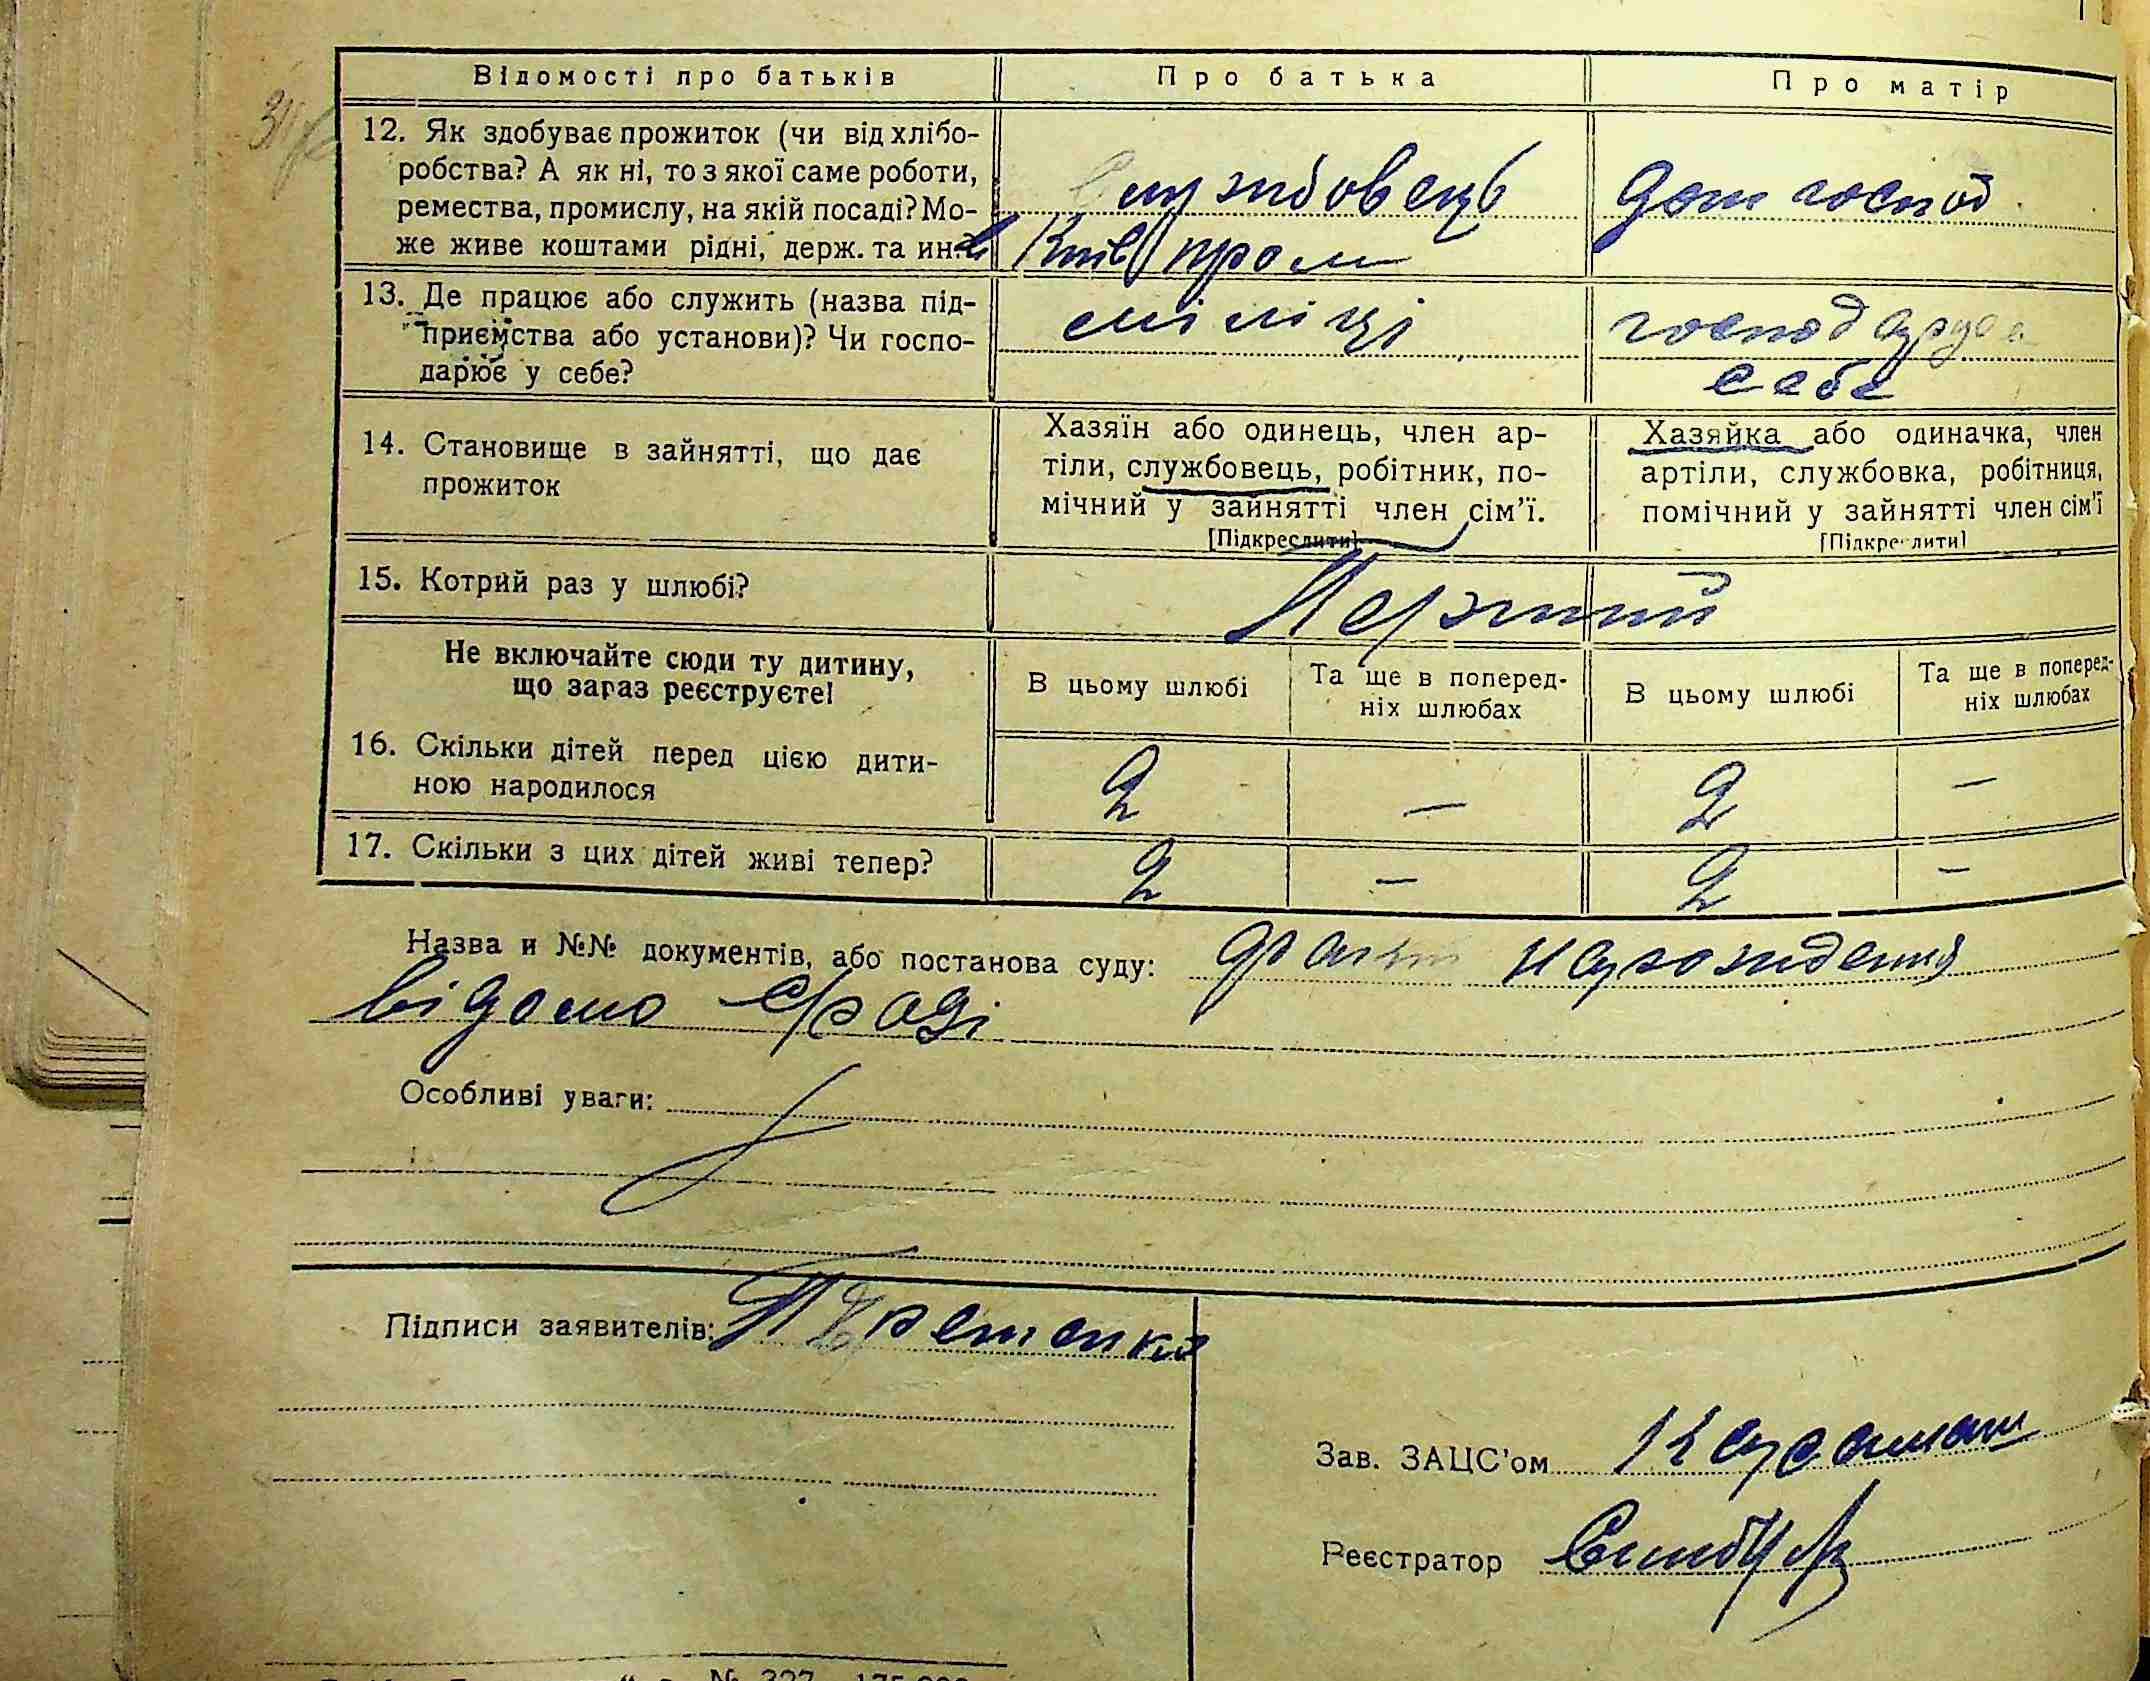 Відомості про батьків
Про батька
Про матір
12. Як здобуває прожиток (чи від хлібо-
робства? А як ні, то з якої саме роботи,
ремества, промислу, на якій посаді? Мо-
же живе коштами рідні, держ. та ин.
службовець
в Київ пром
дом господ.
13. Де працює або служить (назва під-
приємства або установи)? Чи госпо-
дарює у себе?
міліці
господарує
себе
14. Становище в зайнятті, що дає
прожиток
Хазяїн або одинець, член ар-
тіли, службовець, робітник, по-
мічний у зайнятті член сім’ї.
[Підкреслити]
Хазяйка або одиначка, член
артіли, службовка, робітниця,
помічний у зайнятті член сім’ї
[Підкреслити]
15. Котрий раз у шлюбі?
Первий
Не включайте сюди ту дитину,
що зараз реєструєте!
В цьому шлюбі
Та ще в поперед-
ніх шлюбах
В цьому шлюбі
Та ще в поперед-
ніх шлюбах
16. Скільки дітей перед цією дити-
ною народилося
2 — 2 —
17. Скільки з цих дітей живі тепер?
2 — 2 —
Назва и №№ документів, або постанова суду: факт народження
відомо
Особливі уваги:
Підписи заявителів:
Зав. ЗАЦС’ом
Реєстратор
№ 327